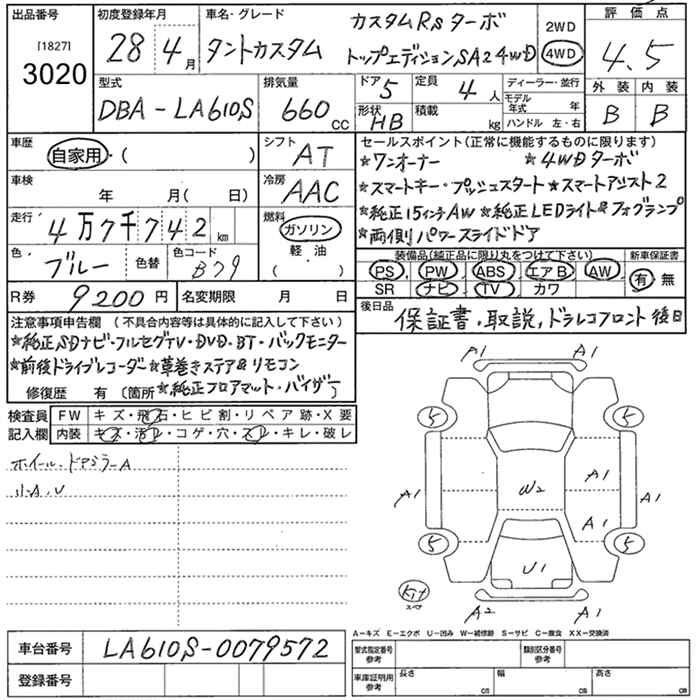 出品番号 初度登録年月 車名・グレード カスタムRSターボ 2WD 評価点
[1827] 3020 28 4月 タントカスタム トップエディションSA2 4WD 4WD 4.5
型式 排気量 ドア 5 定員 4人 ディーラー・並行 外装 内装
DBA-LA610S 660cc 形状 HB 積載 kg モデル年式 年 B B
ハンドル 左・右
車歴 自家用・( ) シフト AT セールスポイント(正常に機能するものに限ります)
★ワンオーナー ★4WDターボ
車検 年 月( 日) 冷房 AAC ★スマートキー・プッシュスタート★スマートアシスト2
走行 4万7千742km 燃料 ガソリン 軽・油 ( ・ ) ★純正15インチAW★純正LEDライト&フォグランプ
★両側パワースライドドア
色 ブルー 色替 色コード B79 装備品(純正品に限り丸をつけて下さい) 新車保証書
PS PW ABS エアB AW 有・無
SR ナビ TV カワ
R券 9200円 名変期限 月 日 後日品 保証書,取説,ドラレコフロント後日
注意事項申告欄 (不具合内容等は具体的に記入して下さい)
★純正SDナビ・フルセグTV・DVD・BT・バックモニター
★前後ドライブレコーダー★革巻きステア&リモコン
修復歴 有 〔箇所 ★純正フロアマット・バイザー〕
検査員 FW キズ・飛石・ヒビ割・リペア跡・X要
記入欄 内装 キズ・汚レ・コゲ・穴・スレ・キレ・破レ
ホイール・ドアミラーA
小A,U
A1 A1
5 5
A1 W2 A1 A1
A1
5 5
U1
Kit
スペア
A2 A1
A-キズ E-エクボ U-凹み W-補修跡 S-サビ C-腐食 XX-交換済
車台番号 LA610S-0079572 型式指定番号 参考 類別区分番号 参考
登録番号 車庫証明用 参考 長さ cm 幅 cm 高さ cm